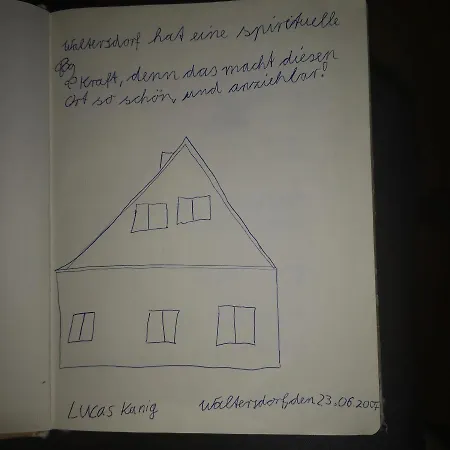 Waltersdorf hat eine spirituelle
Kraft, denn das macht diesen
Ort so schön, und anziehbar!
Lucas Kunig Waltersdorf, den 23.06.2007